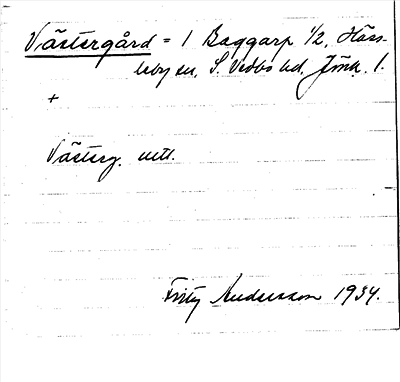 Västergård = 1 Baggarp 1/2, Häss-
leby sn, S. Vedbo hd. Jönk. l.
+
Västerg. uttl.
Fritz Andersson 1934.